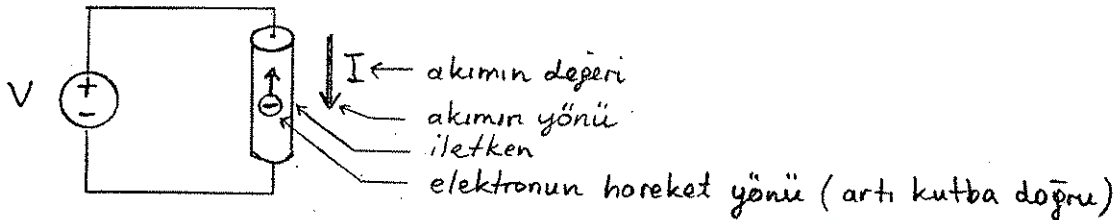 V
+
-
-
I ← akımın değeri
akımın yönü
iletken
elektronun hareket yönü (artı kutba doğru)